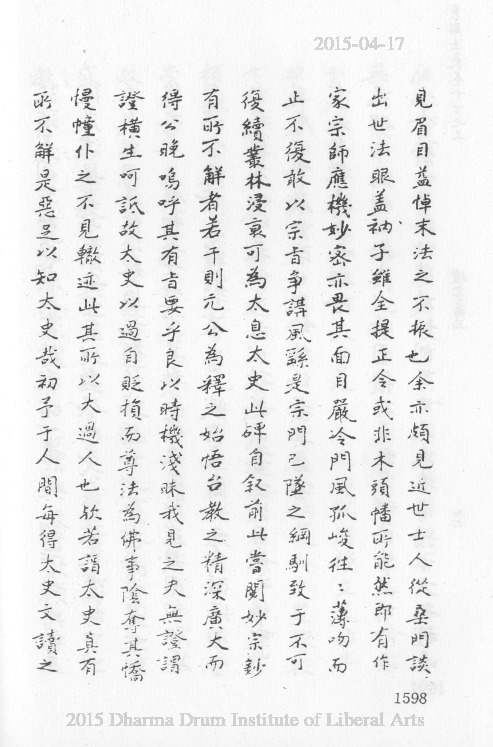 2015-04-17
見眉目蓋悼末法之不振也余亦頗見近世士人從桑門談
出世法眼蓋衲子雖全提正令或非木頭幡所能然郎有作
家宗師應機妙密亦畏其面目嚴冷門風孤峻往〻薄吻而
止不復敢以宗旨爭講風繇是宗門已墜之綱馴致于不可
復續叢林浸衰可為太息太史此碑自叙前此嘗閱妙宗鈔
有所不解者若干則元公為釋之始悟台教之精深廣大而
得公晚嗚呼其有旨要乎良以時機淺昧我見之夫無證謂
證橫生呵詆故太史以過自貶損而尊法為佛事陰奪其憍
慢幢仆之不見轍迹此其所以大過人也欤若謂太史真有
所不解是惡足以知太史哉初予于人間每得太史文讀之
1598
2015 Dharma Drum Institute of Liberal Arts